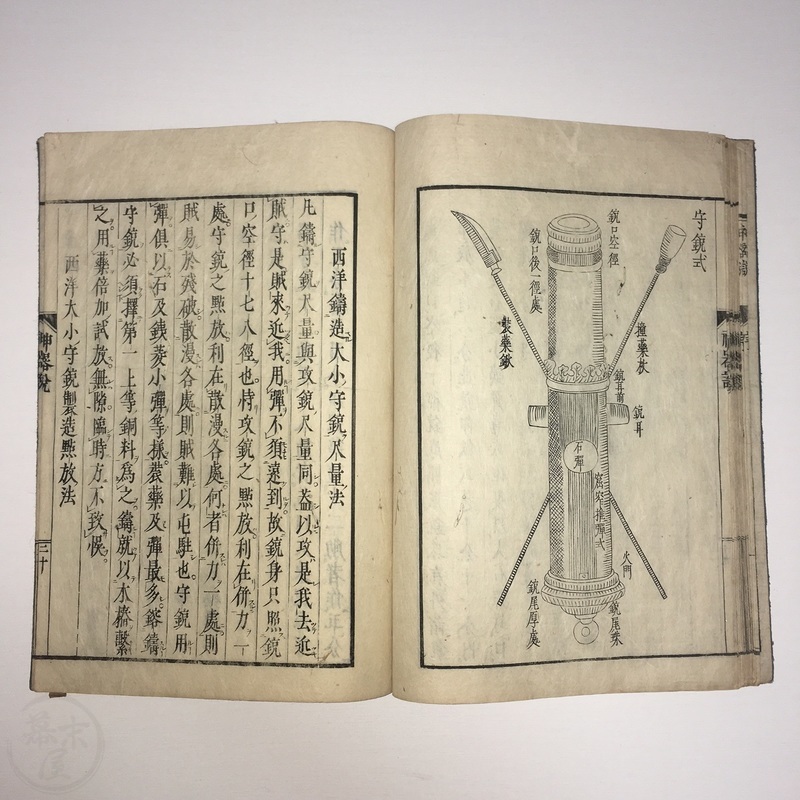 守銃式
銃口空徑
銃口後一徑處
製藥鍬
撞藥杖
銃耳前
銃耳
石彈
窩空推彈式
火門
銃尾厚處
銃尾珠
西洋鑄造大小守銃尺量法
凡鑄守銃尺量與攻銃尺量同盖以攻是我去近
賊守是賊來近我用彈不須遠到故銃身只照銃
口空徑十七八徑也恃攻銃之點放利在併力一
處守銃之點放利在散漫各處何者併力一處則
賊易於殘破散漫各處則賊難以屯駐也守銃用
彈俱以石及鉄菱小彈等樣裝藥及彈最多鎔鑄
守銃必須擇第一上等銅料爲之鑄就以木樁繫
之用藥倍加試放無隙臨時方不致悞
西洋大小守銃製造點放法
神器說
二十
幕末屋